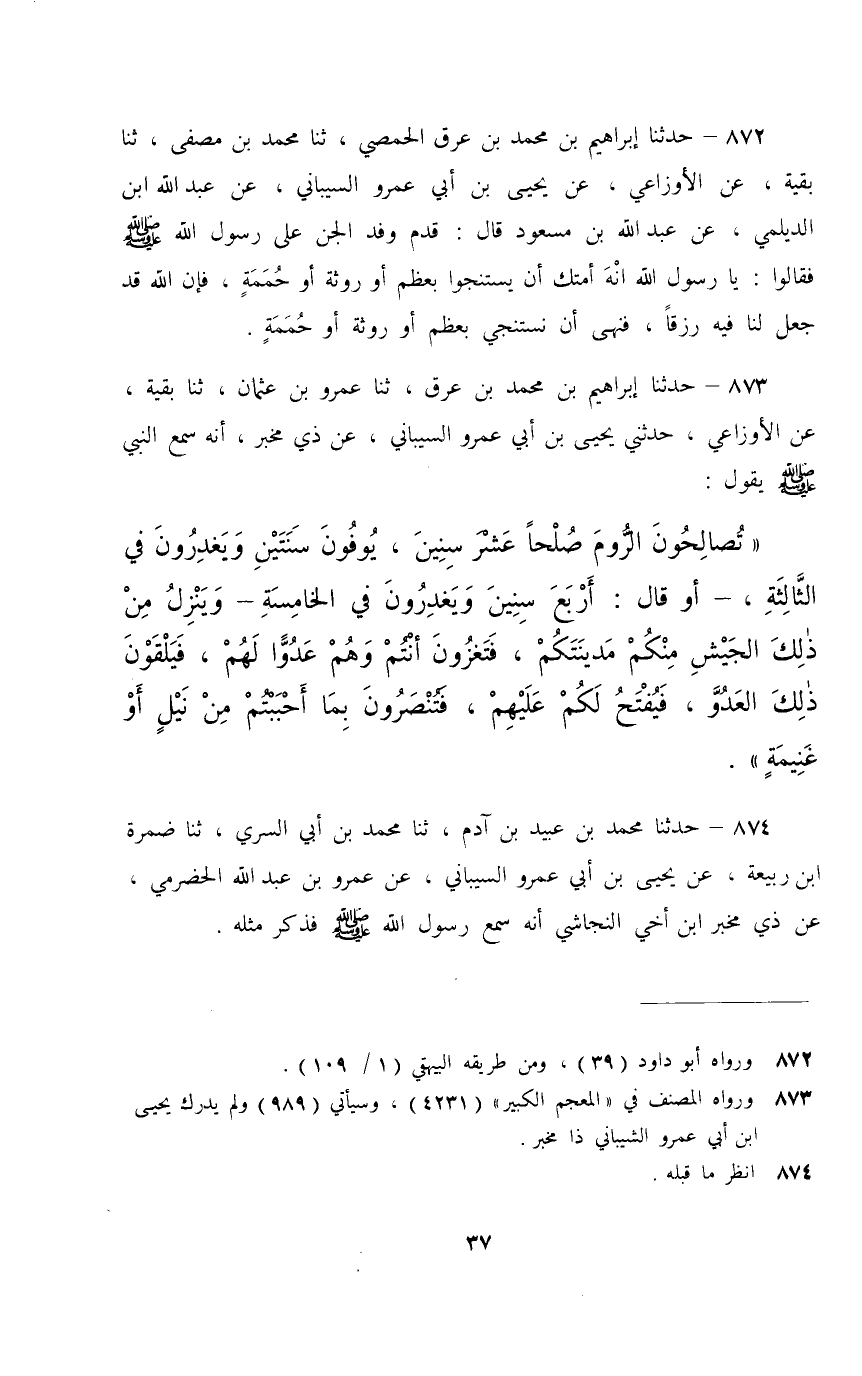 ٨٧٢ – حدثنا إبراهيم بن محمد بن عرق الحمصي ، ثنا محمد بن مصفى ، ثنا
بقية ، عن الأوزاعي ، عن يحيى بن أبي عمرو السيباني ، عن عبد الله ابن
الديلمي ، عن عبد الله بن مسعود قال : قدم وفد الجن على رسول الله ﷺ
فقالوا : يا رسول الله انْهَ أمتك أن يستنجوا بعظم أو روثة أو حُمَمَةٍ ، فإن الله قد
جعل لنا فيه رزقاً ، فنهى أن نستنجي بعظم أو روثة أو حُمَمَةٍ .
٨٧٣ – حدثنا إبراهيم بن محمد بن عرق ، ثنا عمرو بن عثمان ، ثنا بقية ،
عن الأوزاعي ، حدثني يحيى بن أبي عمرو السيباني ، عن ذي مخبر ، أنه سمع النبي
ﷺ يقول :
« تُصالِحُونَ الرُّومَ صُلْحاً عَشْرَ سِنِينَ ، يُوفُونَ سَنَتَيْنِ وَيَغدِرُونَ في
الثَّالِثَةِ ، – أو قال : أَرْبَعَ سِنِينَ وَيَغدِرُونَ في الخامِسَةِ – وَيَنْزِلُ مِنْ
ذٰلِكَ الجَيْشِ مِنْكُمْ مَدينَتَكُمْ ، فَتَغزُونَ أَنْتُمْ وَهُمْ عَدُوًّا لَهُمْ ، فَيَلْقَوْنَ
ذٰلِكَ العَدُوَّ ، فَيُفْتَحُ لَكُمْ عَلَيْهِمْ ، فَتُنْصَرُونَ بِمَا أَحْبَبْتُمْ مِنْ نَيْلٍ أَوْ
غَنِيمَةٍ » .
٨٧٤ – حدثنا محمد بن عبيد بن آدم ، ثنا محمد بن أبي السري ، ثنا ضمرة
ابن ربيعة ، عن يحيى بن أبي عمرو السيباني ، عن عمرو بن عبد الله الحضرمي ،
عن ذي مخبر ابن أخي النجاشي أنه سمع رسول الله ﷺ فذكر مثله .
٨٧٢ ورواه أبو داود (٣٩) ، ومن طريقه البيهقي (١ / ١٠٩) .
٨٧٣ ورواه المصنف في «المعجم الكبير» (٤٢٣١) ، وسيأتي (٩٨٩) ولم يدرك يحيى
ابن أبي عمرو الشيباني ذا مخبر .
٨٧٤ انظر ما قبله .
٣٧